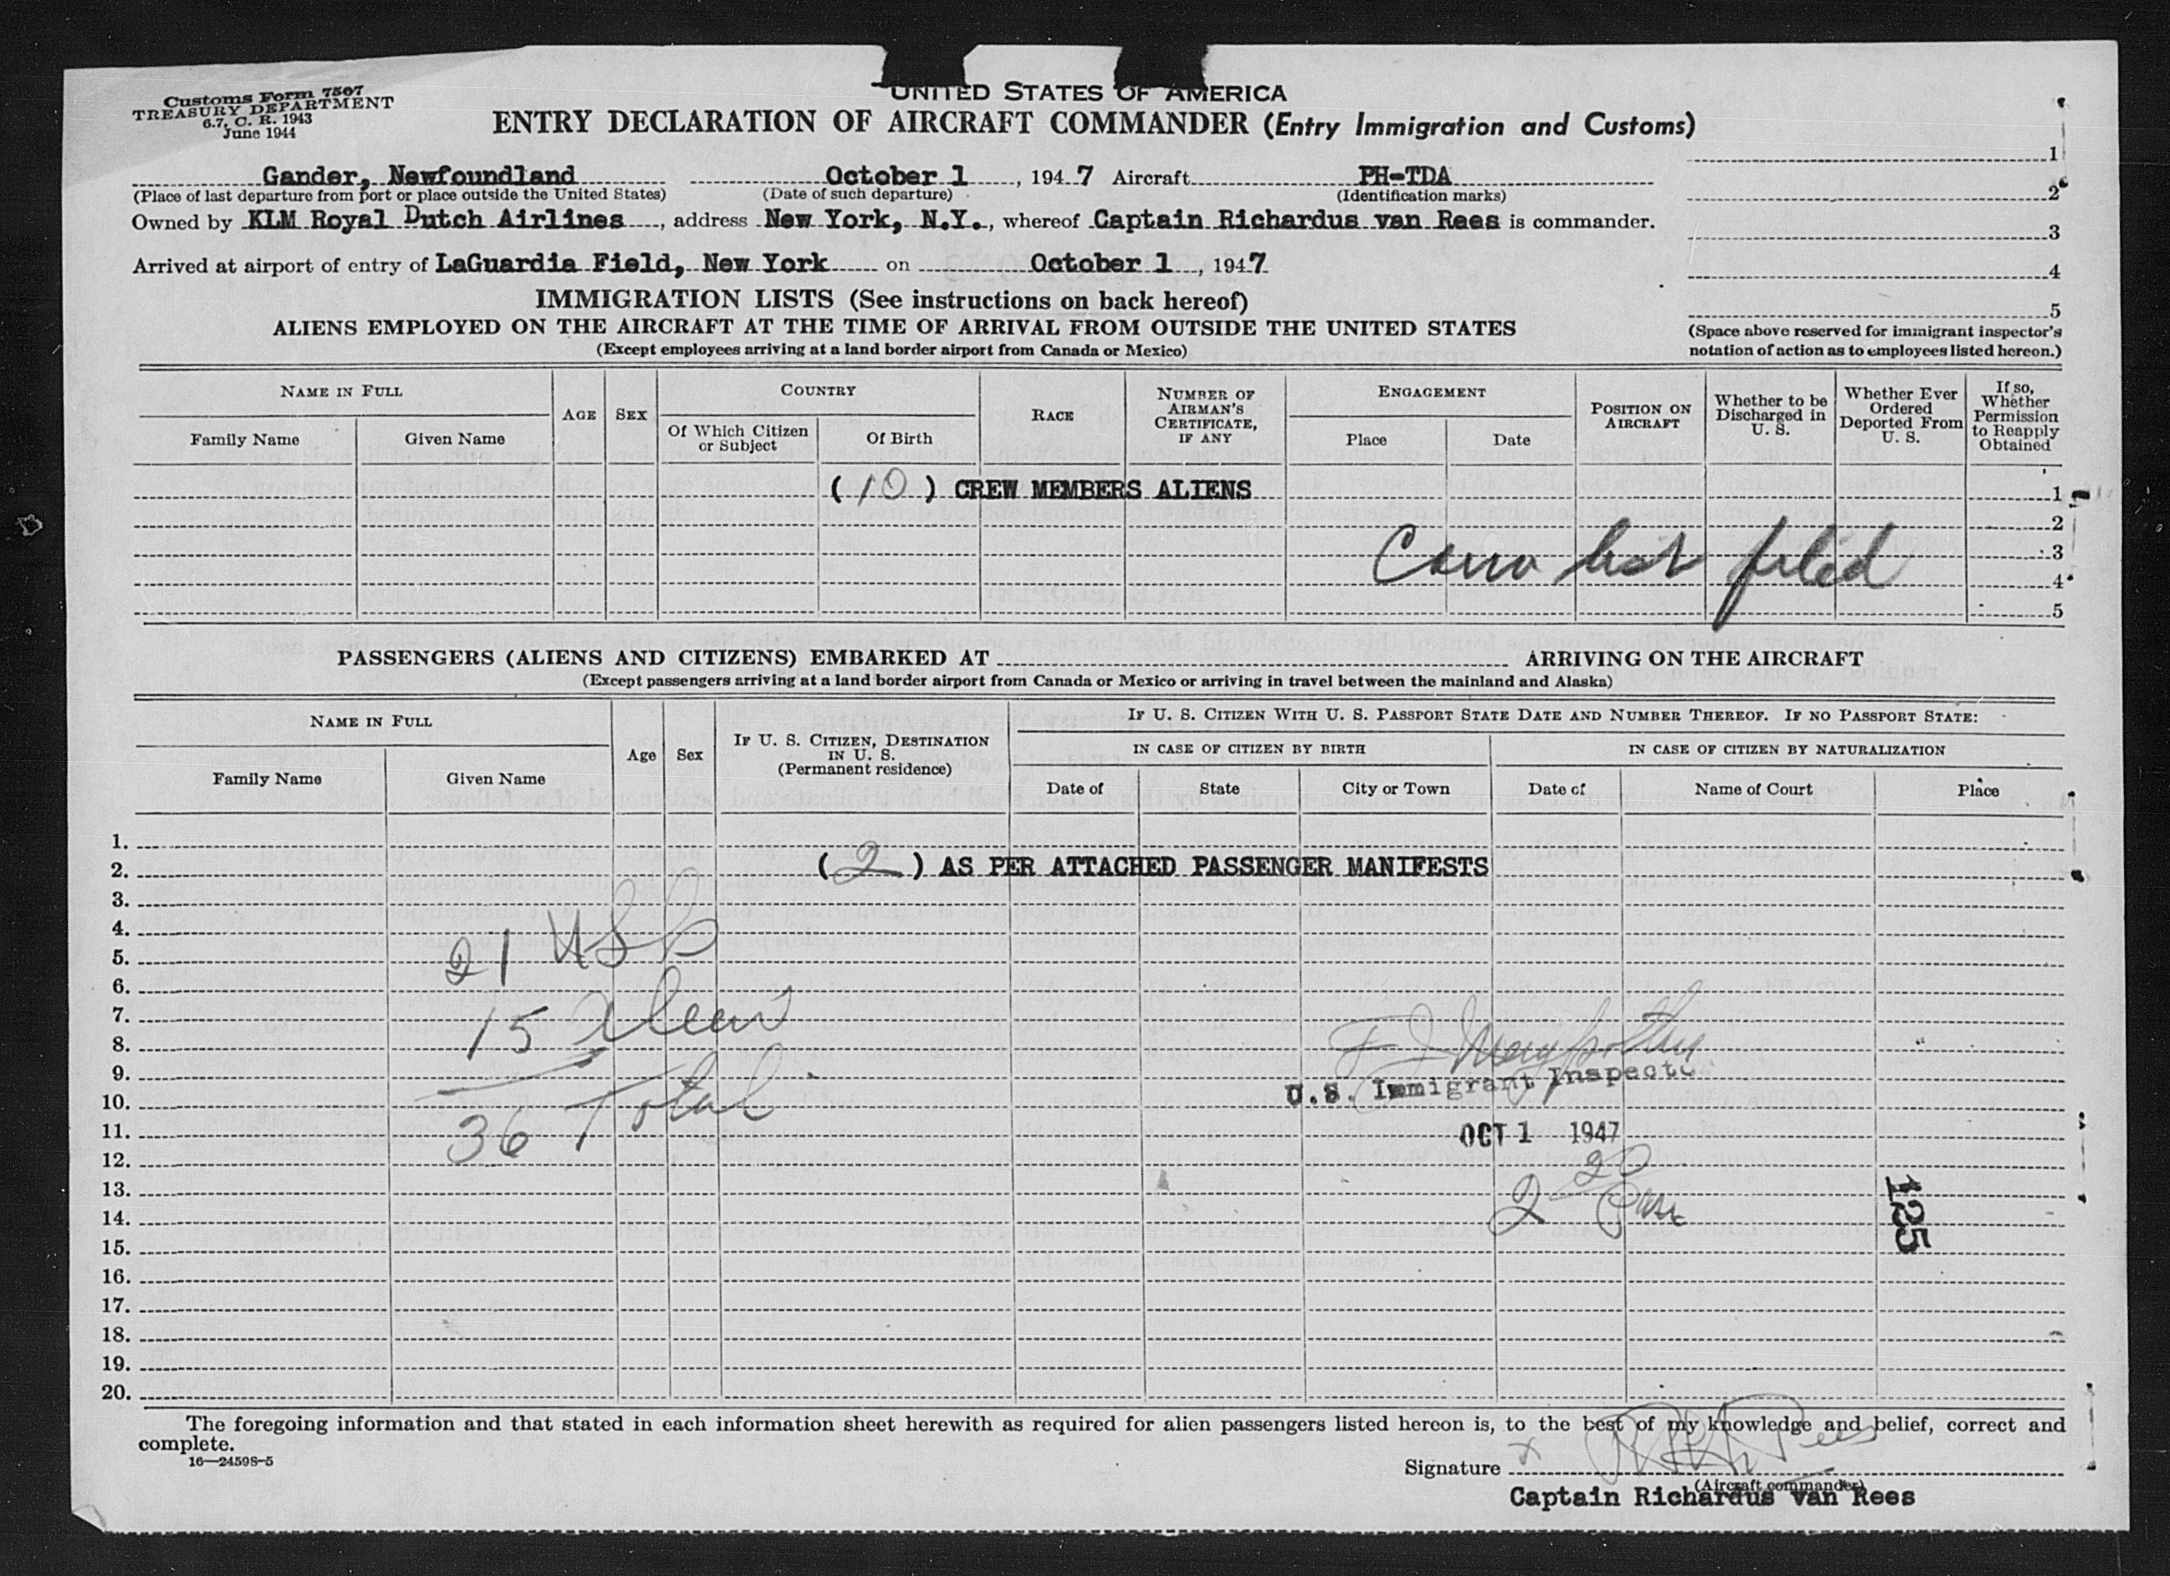 Customs Form 7507
TREASURY DEPARTMENT
6.7, C. R. 1943
June 1944
UNITED STATES OF AMERICA
ENTRY DECLARATION OF AIRCRAFT COMMANDER (Entry Immigration and Customs)
Gander, Newfoundland October 1, 1947 Aircraft PH-TDA
(Place of last departure from port or place outside the United States) (Date of such departure) (Identification marks)
Owned by KLM Royal Dutch Airlines, address New York, N.Y., whereof Captain Richardus van Rees is commander.
Arrived at airport of entry of LaGuardia Field, New York on October 1, 1947
1
2
3
4
5
(Space above reserved for immigrant inspector's
notation of action as to employees listed hereon.)
IMMIGRATION LISTS (See instructions on back hereof)
ALIENS EMPLOYED ON THE AIRCRAFT AT THE TIME OF ARRIVAL FROM OUTSIDE THE UNITED STATES
(Except employees arriving at a land border airport from Canada or Mexico)
NAME IN FULL
Family Name
Given Name
AGE
SEX
COUNTRY
Of Which Citizen
or Subject
Of Birth
RACE
NUMBER OF
AIRMAN'S
CERTIFICATE,
IF ANY
ENGAGEMENT
Place
Date
POSITION ON
AIRCRAFT
Whether to be
Discharged in
U. S.
Whether Ever
Ordered
Deported From
U. S.
If so,
Whether
Permission
to Reapply
Obtained
(10) CREW MEMBERS ALIENS 1
2
list filed 3
4
5
PASSENGERS (ALIENS AND CITIZENS) EMBARKED AT ARRIVING ON THE AIRCRAFT
(Except passengers arriving at a land border airport from Canada or Mexico or arriving in travel between the mainland and Alaska)
NAME IN FULL
Family Name
Given Name
Age
Sex
IF U. S. CITIZEN, DESTINATION
IN U. S.
(Permanent residence)
IF U. S. CITIZEN WITH U. S. PASSPORT STATE DATE AND NUMBER THEREOF. IF NO PASSPORT STATE:
IN CASE OF CITIZEN BY BIRTH
Date of
State
City or Town
IN CASE OF CITIZEN BY NATURALIZATION
Date of
Name of Court
Place
1.
2. (2) AS PER ATTACHED PASSENGER MANIFESTS
3.
4.
5. 21 USC
6.
7.
8. 15 Aliens
9. U.S. Immigrant Inspector
10.
11. 36 Total OCT 1 1947
12.
13.
14. 125
15.
16.
17.
18.
19.
20.
The foregoing information and that stated in each information sheet herewith as required for alien passengers listed hereon is, to the best of my knowledge and belief, correct and
complete.
16—24598-5
Signature X
(Aircraft commander)
Captain Richardus van Rees